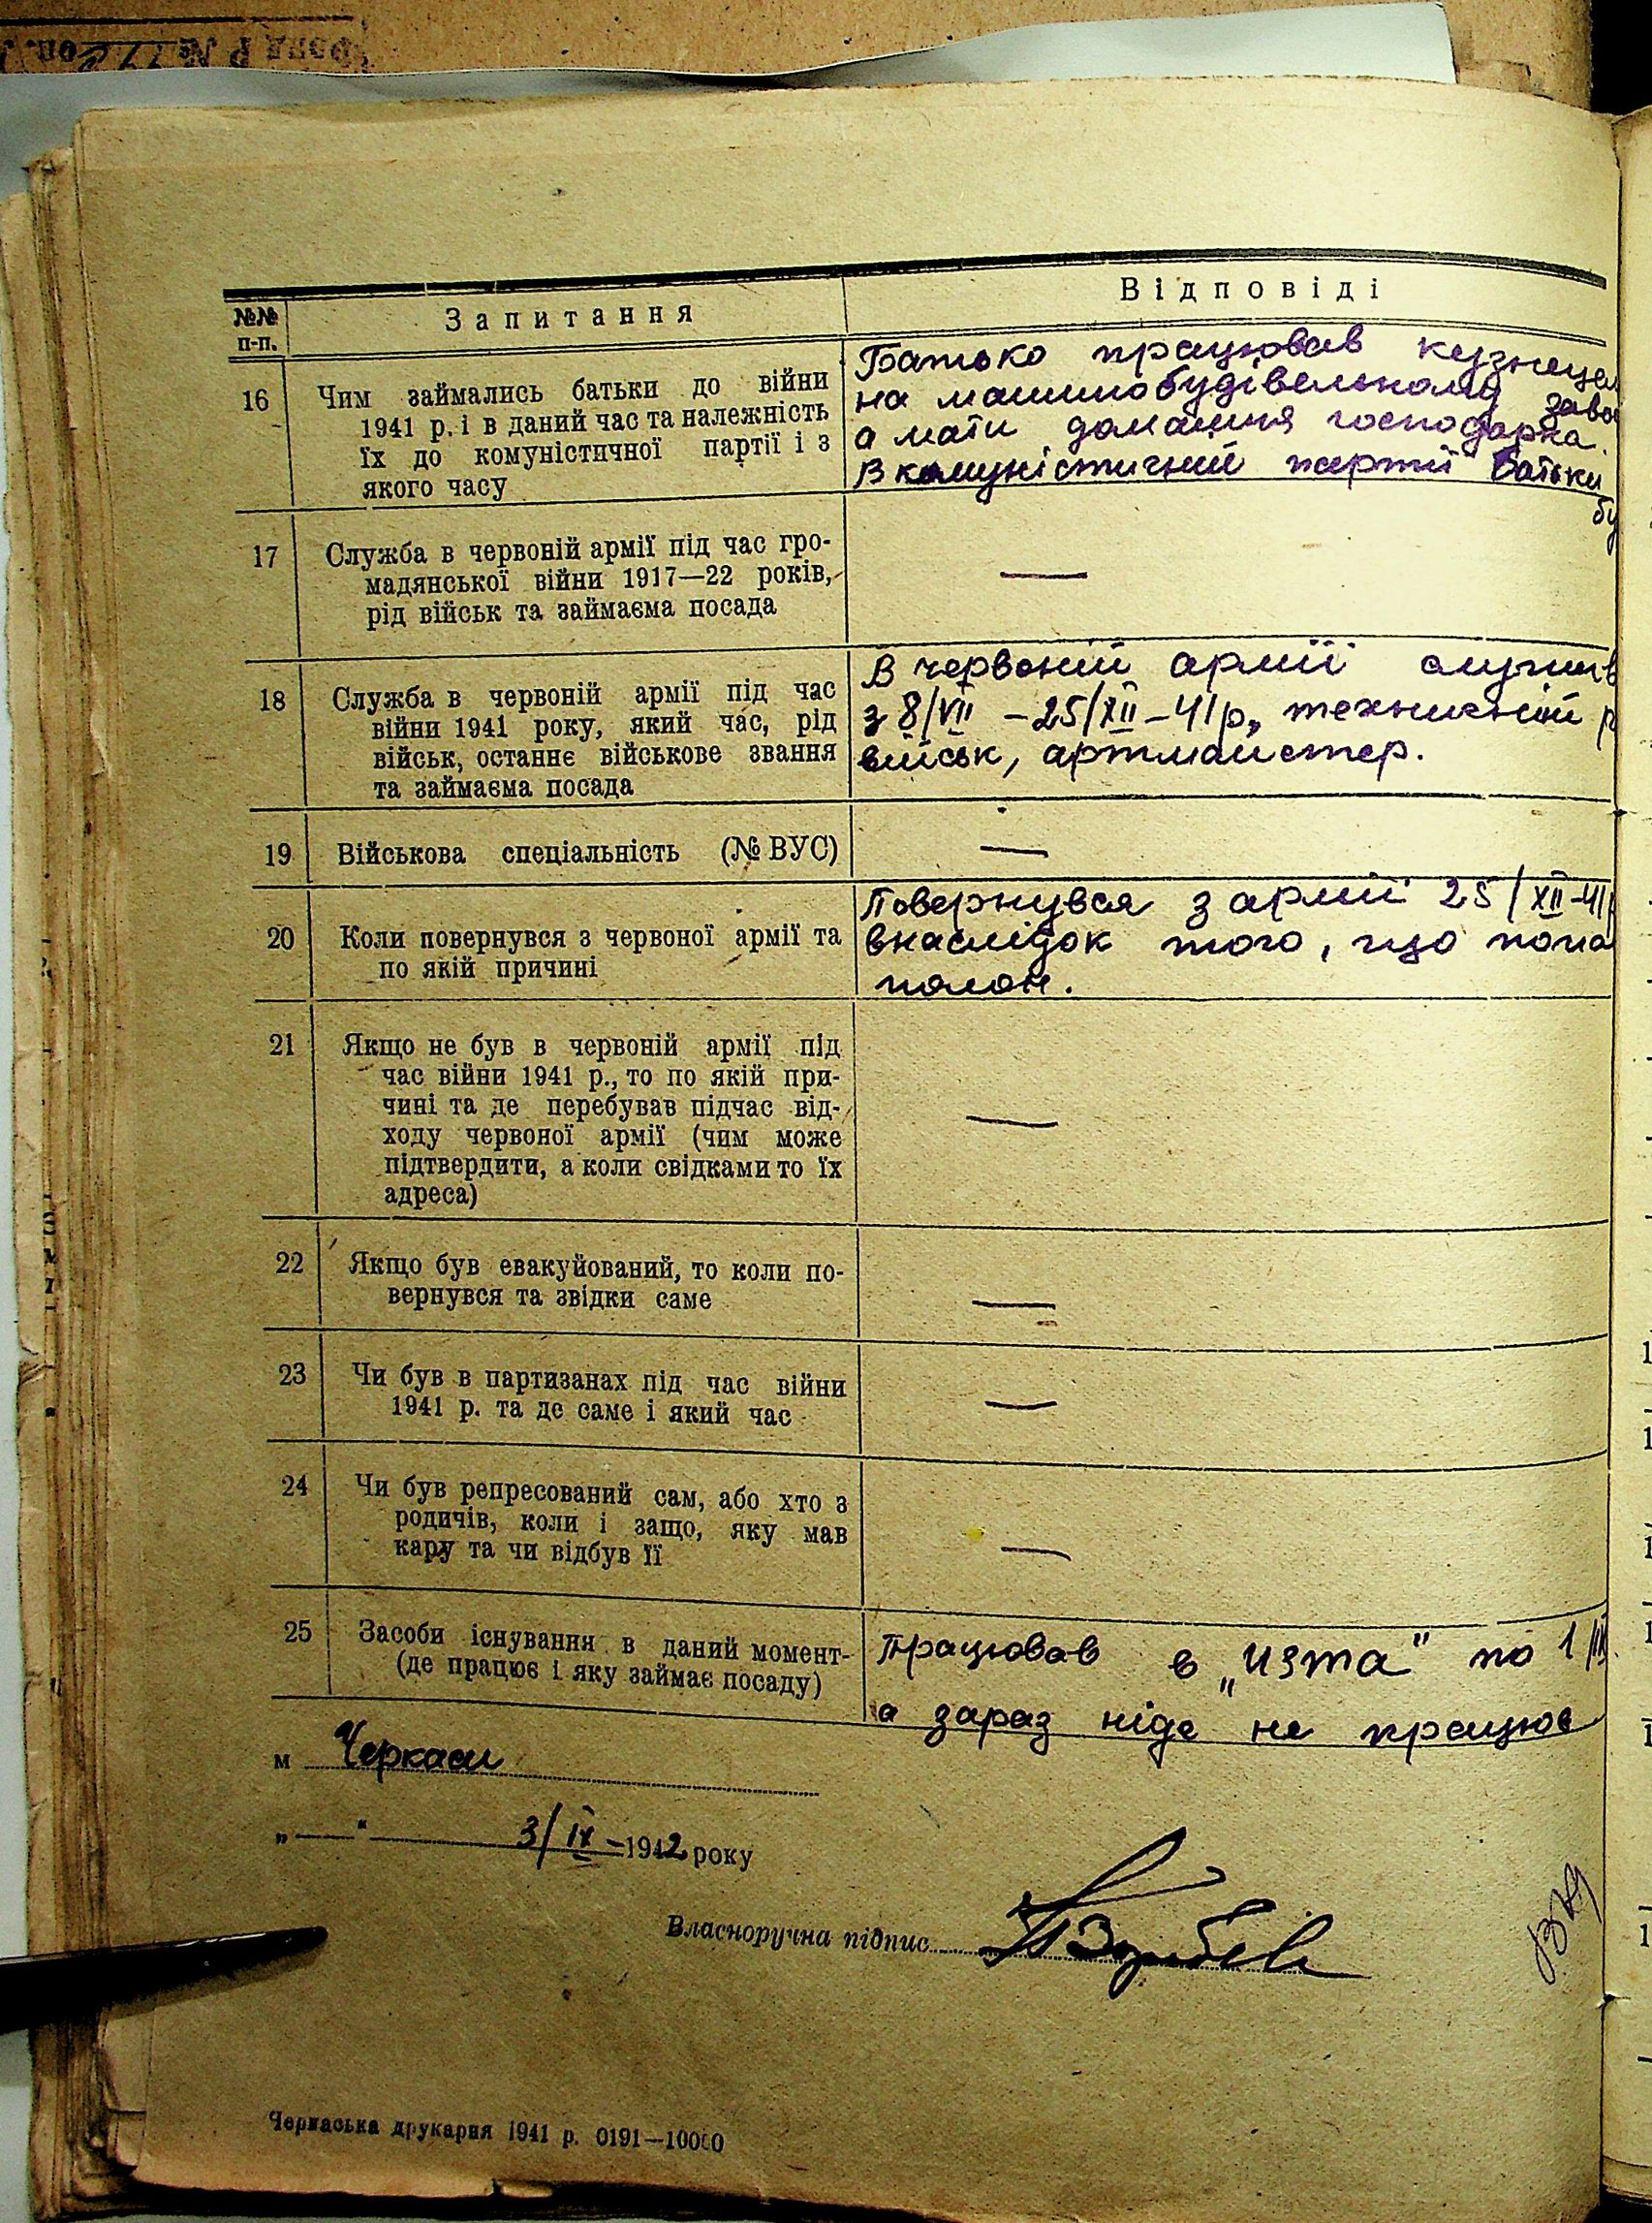 №№ п-п.
Запитання
Відповіді
16
Чим займались батьки до війни
1941 р. і в даний час та належність
їх до комуністичної партії і з
якого часу
Батько працював кузнецем
на машинобудівельному заво
а мати домашня господарка.
В комуністичній партії батьки
17
Служба в червоній армії під час гро-
мадянської війни 1917—22 років,
рід військ та займаєма посада
—
18
Служба в червоній армії під час
війни 1941 року, який час, рід
військ, останнє військове звання
та займаєма посада
В червоній армії служив
з 8/VII – 25/XII – 41 р., технічний р
військ, артмайстер.
19
Військова спеціальність (№ ВУС)
—
20
Коли повернувся з червоної армії та
по якій причині
Повернувся з армії 25/XII-41
внаслідок того, що попа
полон.
21
Якщо не був в червоній армії під
час війни 1941 р., то по якій при-
чині та де перебував підчас від-
ходу червоної армії (чим може
підтвердити, а коли свідками то їх
адреса)
—
22
Якщо був евакуйований, то коли по-
вернувся та звідки саме
—
23
Чи був в партизанах під час війни
1941 р. та де саме і який час
—
24
Чи був репресований сам, або хто з
родичів, коли і защо, яку мав
кару та чи відбув її
—
25
Засоби існування в даний момент-
(де працює і яку займає посаду)
Працював в „Изта" по 1/
а зараз ніде не працюю
м Черкаси
„—" 3/IX – 1942 року
Власноручна підпис
Черкаська друкарня 1941 р. 0191—10000